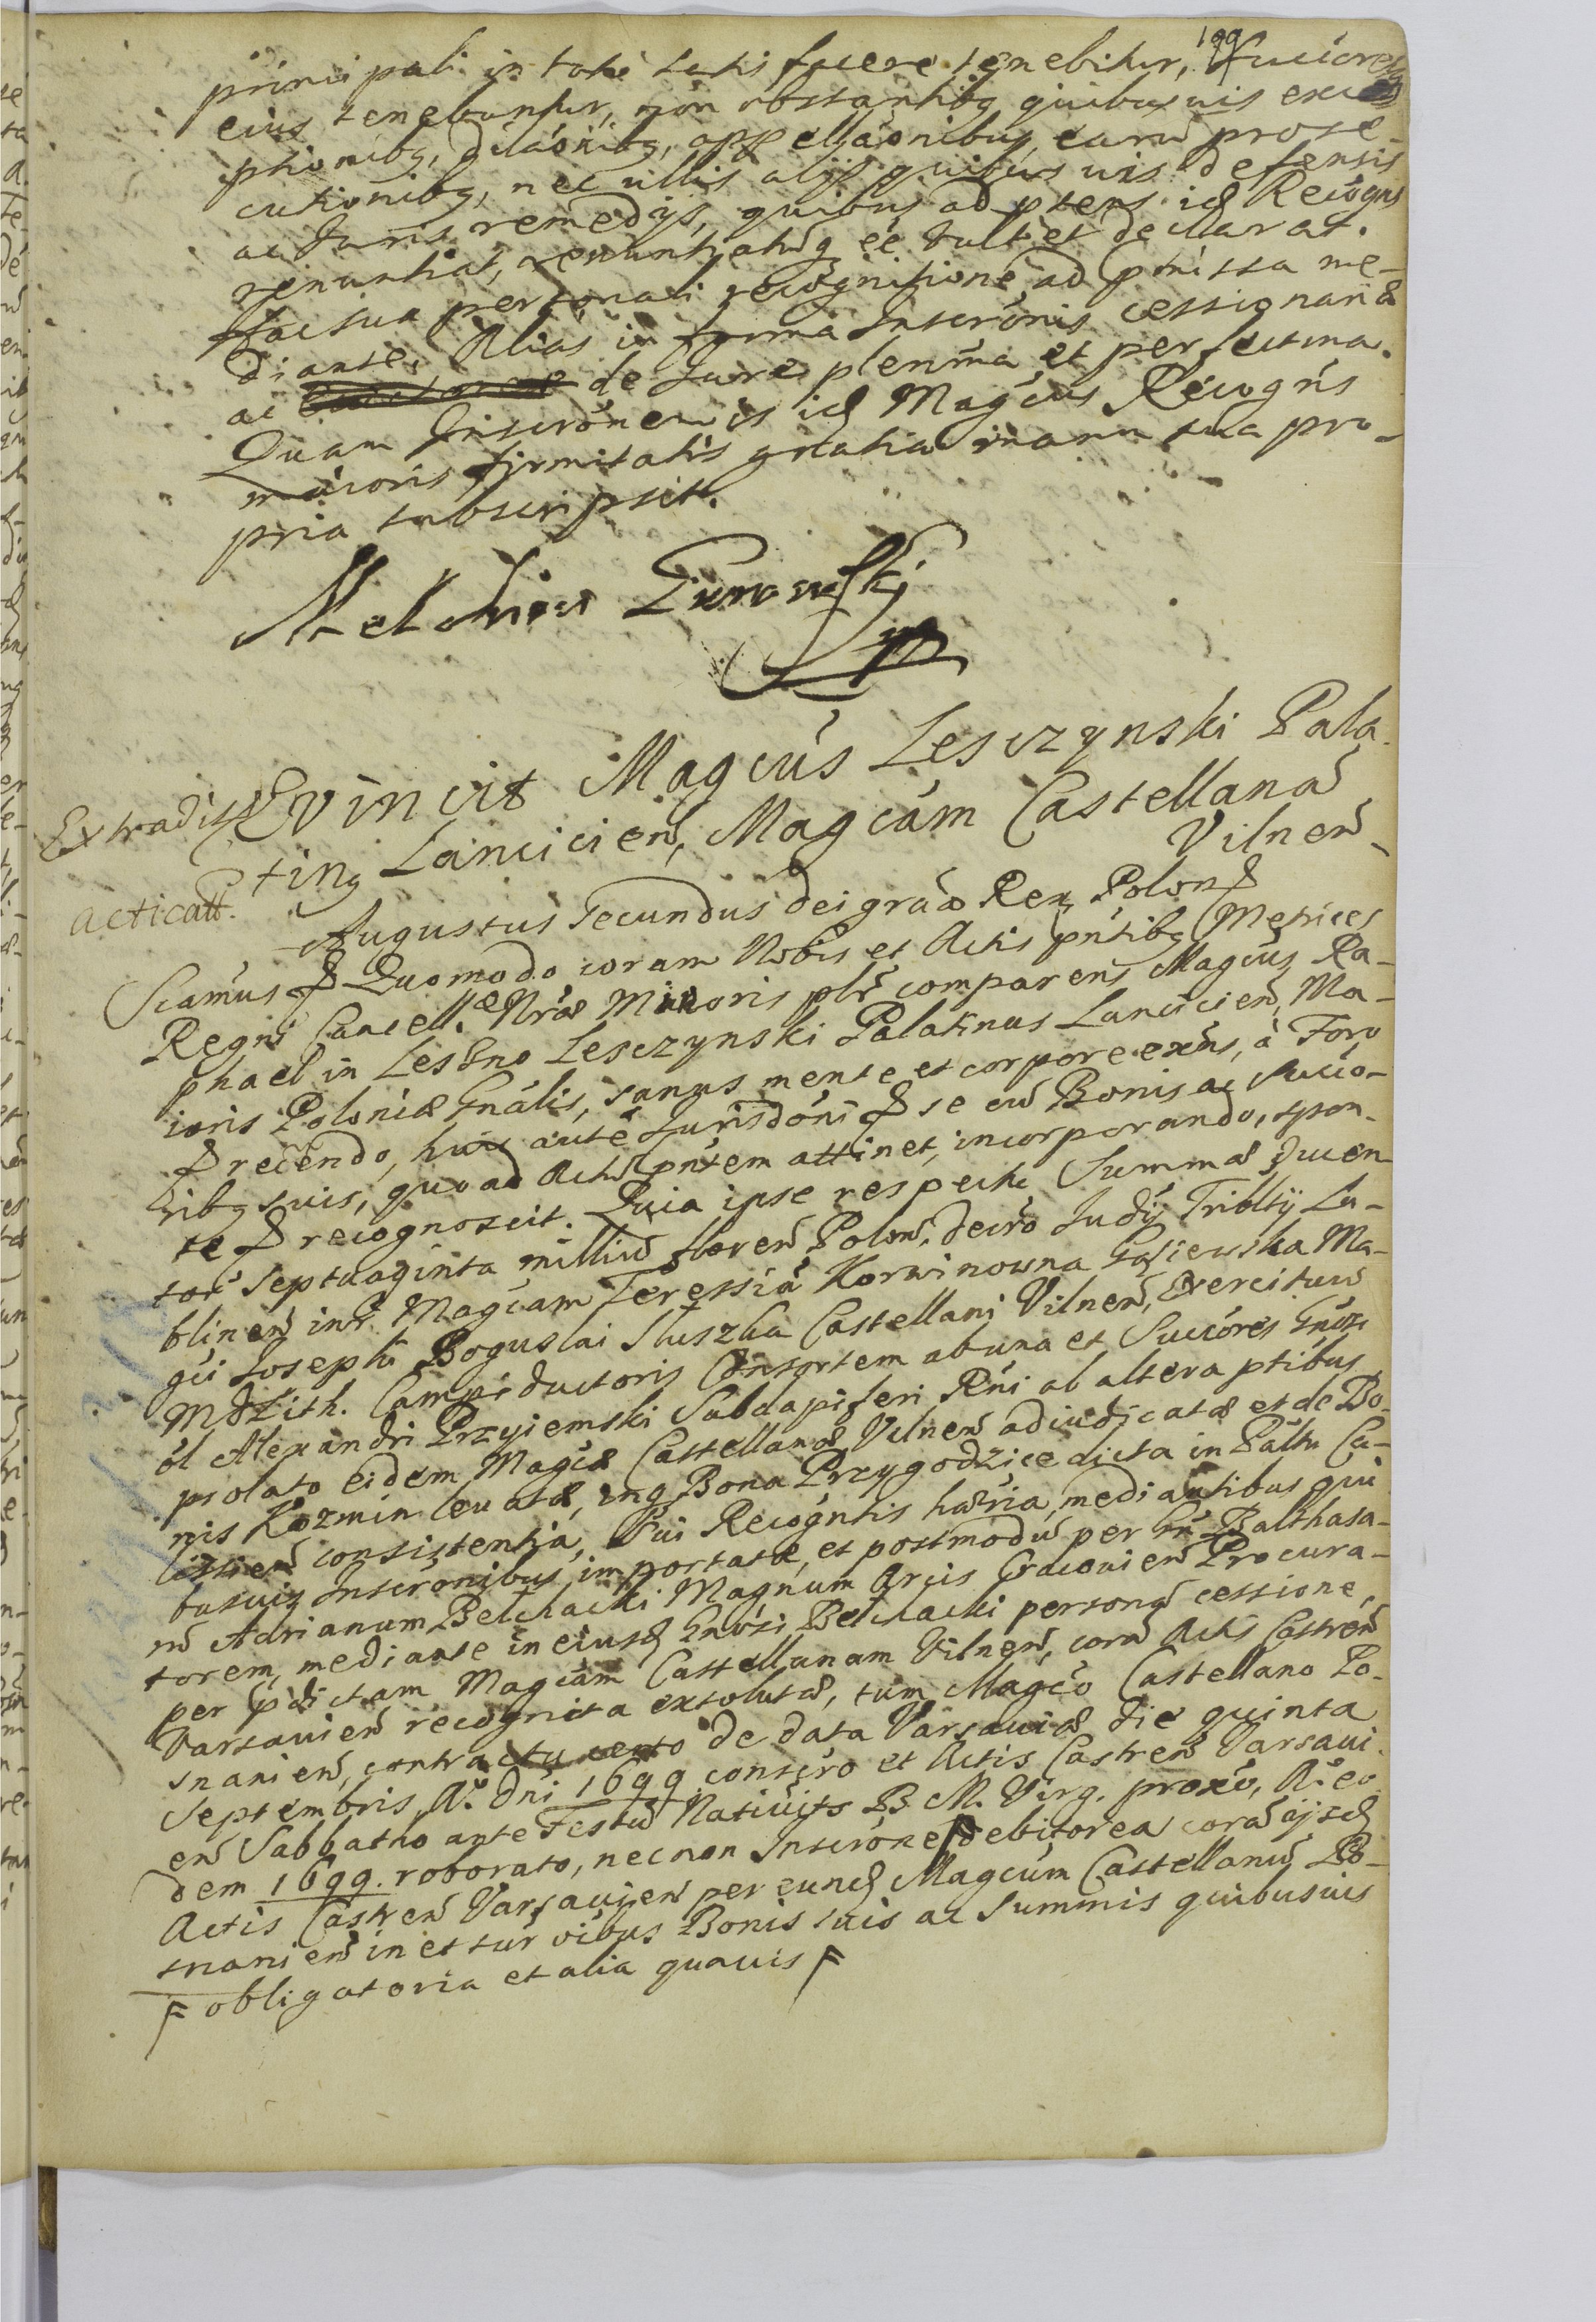 199
principali in toto satisfacere tenebitur, Succores
eius tenebuntur, non obstantibq quibusuis exce
ptionibq, dilaonibq, appellaonibus, earu prose-
cutionibq, nec ullis alijs quibus uis defensis
ac Juris remedijs, quibus ad ptens id Recogns
renuntiat, renuntiatuq ee vult et declarat.
hac sua personali recognitione, ad pmissa me-
diante. Alias in forma Inscronis cessionariæ
ac de Jure plenma et perfectma.
Quam Inscronem is id Magcus Recogns
maioris firmitatis gratia manu sua pro-
pria subscripsit.
Melchior Gurowski
mp
Extradita
Evincit Magcus Lesczynski Pala-
tinq Lancicien, Magcam Castellana
Vilnen
Acticatt.
Augustus Secundus dei graa Rex Polon &
Scamus & Quomodo coram Nobis et Actis pntibq Metrices
Regni Cancell.æ Nræ Minoris plr comparens Magcus Ra-
phael in Leszno Lesczynski Palatinus Lancicien, Ma-
ioris Poloniæ Gnalis, sanus mente et corpore exns, à Foro
& recendo, huic aute Jurisdoni & se cu Bonis ac Succo-
ribq suis, quo ad Actu pntem attinet, incorporando, spon-
te & recognoscit. Quia ipse respectu Summæ ducen
tor septuaginta milliu floren Polon, decro Judij Triblty Lu-
blinen intr Magcam Teressia Korwinowna Gasiewska Ma-
gci Josephi Boguslai Sluszka Castellani Vilnen, Exercituu
MDLith. Campi ductoris Consortem ab una et Succores Gnosi
ol Alexandri Przyiemski Subdapiferi Rni ab altera ptibus
prolato eidem Magcæ Castellanæ Vilnen adiudicatæ et de Bo-
nis Kozmin leuatæ, inq Bona Przygodzice dicta in Paltu Ca-
lissien consistentia, Sui Recogntis hæria, mediantibus qui
busuis Inscronibus importatæ, et postmodu per Gn Balthasa-
ru Adrianum Belchacki Magnum Arcis Cracouien Procura-
torem, mediante in eiusd Gnosi Belchacki persona cessione,
per pdictam Magcam Castellanam Vilnen, cora Actis Castren
Varsauien recognita exsolutæ, tum Magco Castellano Po-
snanien, contractu de data Varsauiæ die quinta
Septembris, Ao Dni 1699 conscro et Actis Castren Varsaui-
en Sabbatho ante Festu Natiuits B. M. Virg. proxo, Ao eo
dem 1699. roborato, nec non Inscrone debitorea cora ijsd
Actis Castren Varsauien per eund Magcum Castellanu Po-
snanien in et sur oibus Bonis suis ac Summis quibusuis
F obligatoria et alia quauis F